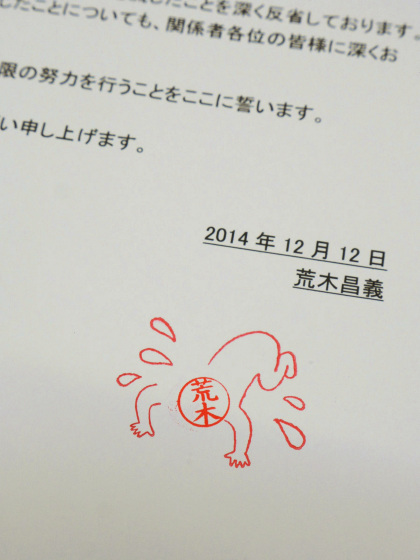 したことを深く反省しております。
したことについても、関係者各位の皆様に深くお
限の努力を行うことをここに誓います。
い申し上げます。
2014年12月12日
荒木昌義
荒木